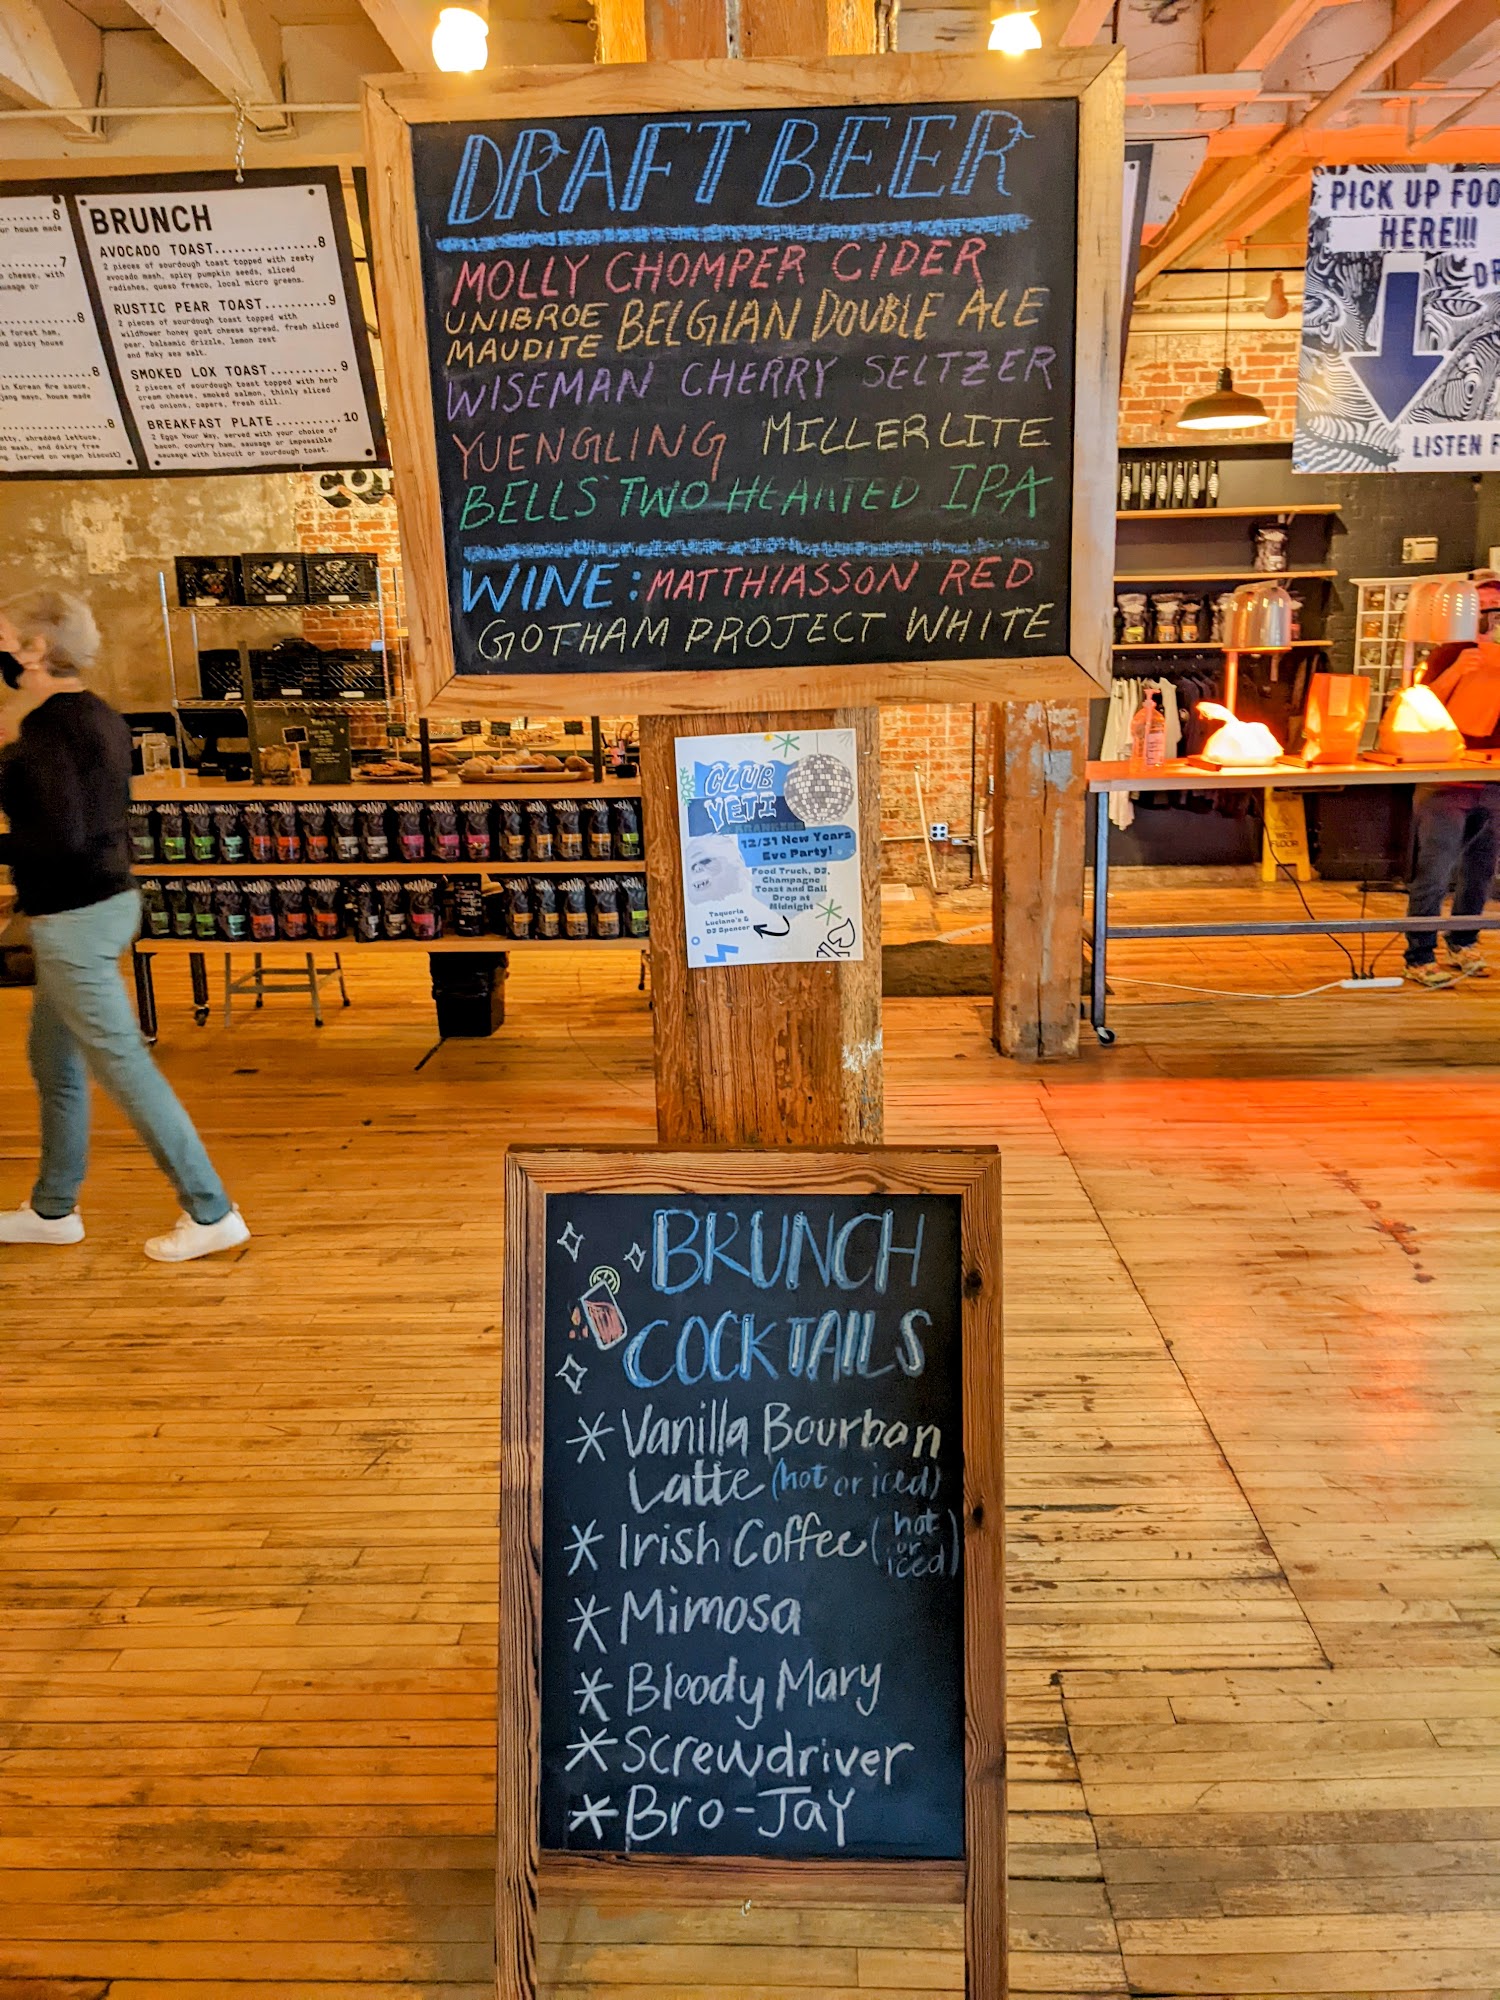 DRAFT BEER
MOLLY CHOMPER CIDER
UNIBROE MAUDITE BELGIAN DOUBLE ALE
WISEMAN CHERRY SELTZER
YUENGLING MILLER LITE
BELLS TWO HEARTED IPA
WINE: MATTHIASSON RED
GOTHAM PROJECT WHITE
BRUNCH
AVOCADO TOAST..............8
2 pieces of sourdough toast topped with zesty
avocado mash, spicy pumpkin seeds, sliced
radishes, queso fresco, local micro greens.
RUSTIC PEAR TOAST..........9
2 pieces of sourdough toast topped with
wildflower honey goat cheese spread, fresh sliced
pear, balsamic drizzle, lemon zest
and flaky sea salt.
SMOKED LOX TOAST..........9
2 pieces of sourdough toast topped with herb
cream cheese, smoked salmon, thinly sliced
red onions, capers, fresh dill.
BREAKFAST PLATE..........10
2 Eggs Your Way, served with your choice of
bacon, country ham, sausage or impossible
sausage with biscuit or sourdough toast.
8
ur house made
7
cheese, with
ausage or
8
k forest ham,
nd spicy house
8
in Korean fire sauce,
jang mayo, house made
8
shredded lettuce,
mash, and dairy free
(served on vegan biscuit)
PICK UP FOO
HERE!!!
DR
LISTEN F
CLUB
YETI
12/31 New Years
Eve Party!
Food Truck, DJ,
Champagne
Toast and Ball
Drop at
Midnight
Taqueria
Luciano's &
DJ Spencer
WET
FLOOR
BRUNCH
COCKTAILS
* Vanilla Bourbon
Latte (hot or iced)
* Irish Coffee (hot or iced)
* Mimosa
* Bloody Mary
* Screwdriver
* Bro-Jay